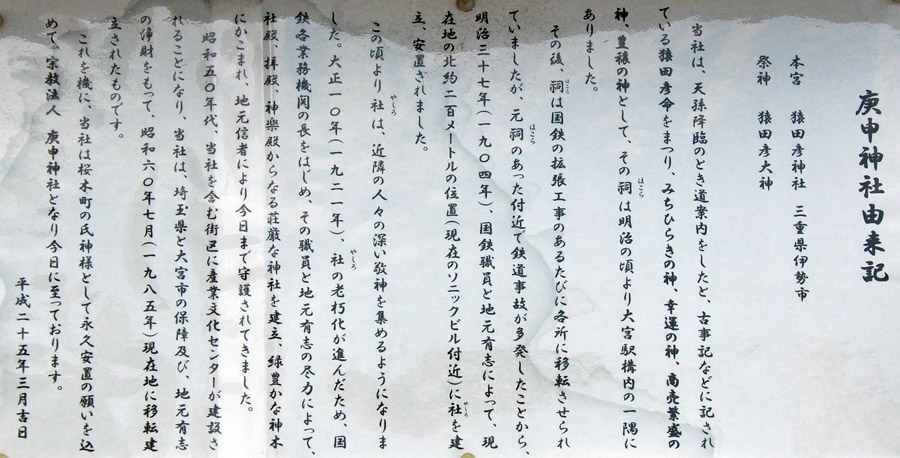 庚申神社由来記
本宮 猿田彦神社 三重県伊勢市
祭神 猿田彦大神
当社は、天孫降臨のとき道案内をしたと、古事記などに記され
ている猿田彦命をまつり、みちひらきの神、幸運の神、商売繁盛の
神、豊穣の神として、その祠は明治の頃より大宮駅構内の一隅に
ほこら
ありました。
その後、祠は国鉄の拡張工事のあるたびに各所に移転させられ
ほこら
ていましたが、元祠のあった付近で鉄道事故が多発したことから、
ほこら
明治三十七年(一九〇四年)、国鉄職員と地元有志によって、現
在地の北約二百メートルの位置(現在のソニックビル付近)に社を建
やしろ
立、安置されました。
この頃より社は、近隣の人々の深い敬神を集めるようになりま
やしろ
した。大正一〇年(一九二一年)、社の老朽化が進んだため、国
やしろ
鉄各業務機関の長をはじめ、その職員と地元有志の尽力によって、
社殿、拝殿、神楽殿からなる荘厳な神社を建立、緑豊かな神木
にかこまれ、地元信者により今日まで守護されてきました。
昭和五〇年代、当社を含む街区に産業文化センターが建設さ
れることになり、当社は、埼玉県と大宮市の保障及び、地元有志
の浄財をもって、昭和六〇年七月(一九八五年)現在地に移転建
立されたものです。
これを機に、当社は桜木町の氏神様として永久安置の願いを込
めて、宗教法人 庚申神社となり今日に至っております。
平成二十五年三月吉日